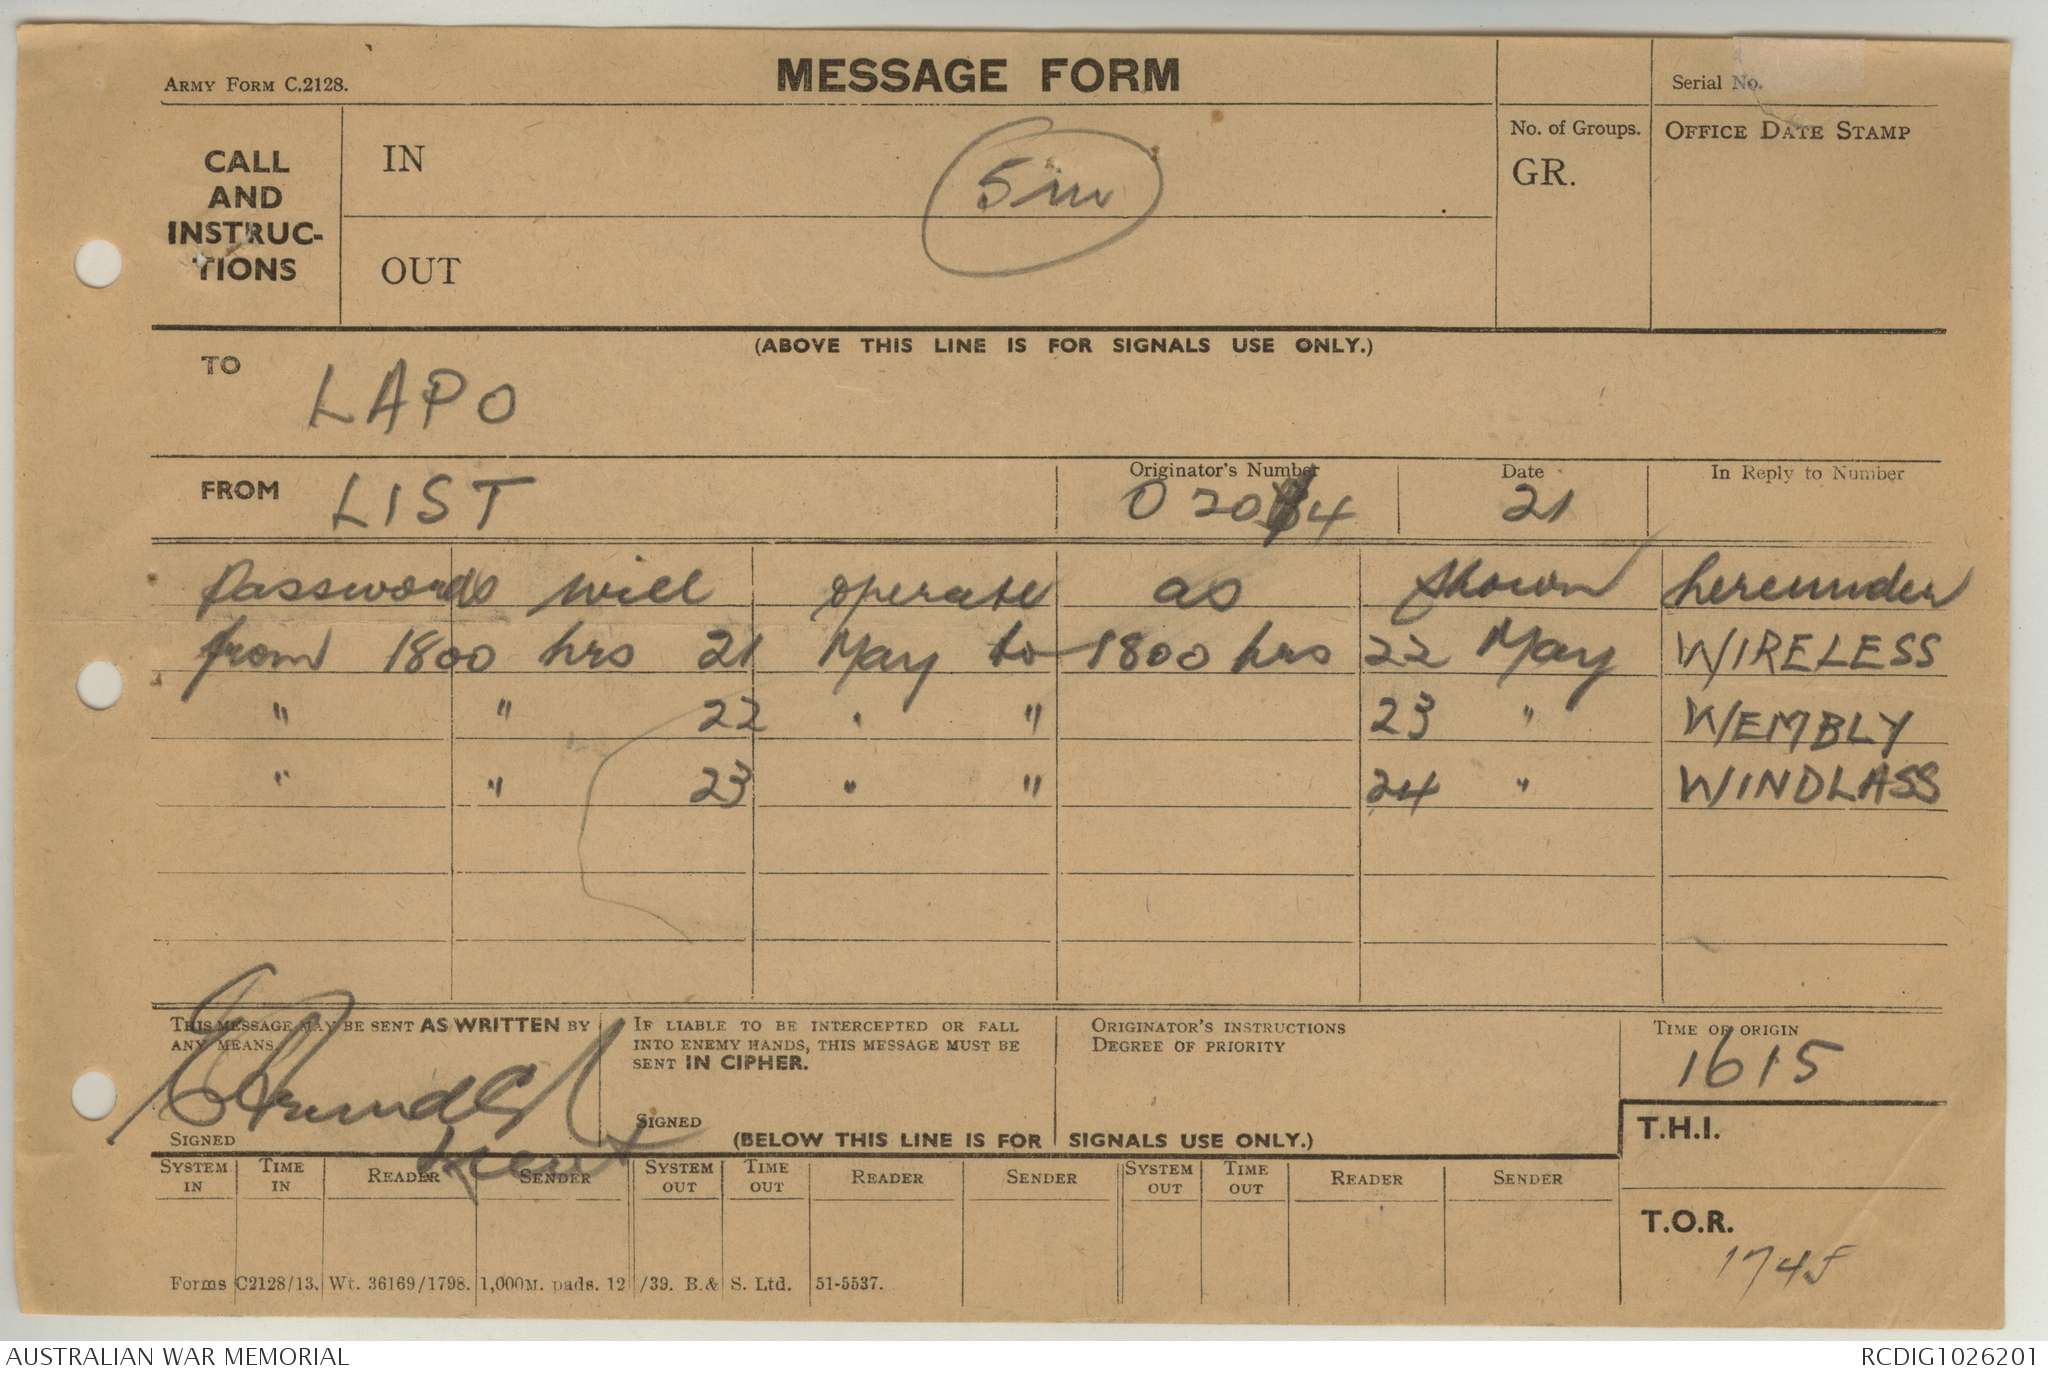 ARMY FORM C.2128.
MESSAGE FORM
Serial No.
CALL AND INSTRUC-TIONS
IN
5
No. of Groups.
GR.
OFFICE DATE STAMP
OUT
(ABOVE THIS LINE IS FOR SIGNALS USE ONLY.)
TO LAPO
FROM LIST
Originator's Number
O 2014
Date
21
In Reply to Number
Passwords will operate as shown hereunder
from 1800 hrs 21 May to 1800 hrs 22 May WIRELESS
" " 22 " " 23 " WEMBLY
" " 23 " " 24 " WINDLASS
THIS MESSAGE MAY BE SENT AS WRITTEN BY ANY MEANS.
SIGNED
Lieut
IF LIABLE TO BE INTERCEPTED OR FALL INTO ENEMY HANDS, THIS MESSAGE MUST BE SENT IN CIPHER.
SIGNED
ORIGINATOR'S INSTRUCTIONS
DEGREE OF PRIORITY
TIME OF ORIGIN
1615
(BELOW THIS LINE IS FOR SIGNALS USE ONLY.)
T.H.I.
SYSTEM IN TIME IN READER SENDER SYSTEM OUT TIME OUT READER SENDER SYSTEM OUT TIME OUT READER SENDER
T.O.R.
1745
Forms C2128/13. Wt. 36169/1798. 1,000M. pads. 12/39. B.& S. Ltd. 51-5537.
AUSTRALIAN WAR MEMORIAL
RCDIG1026201